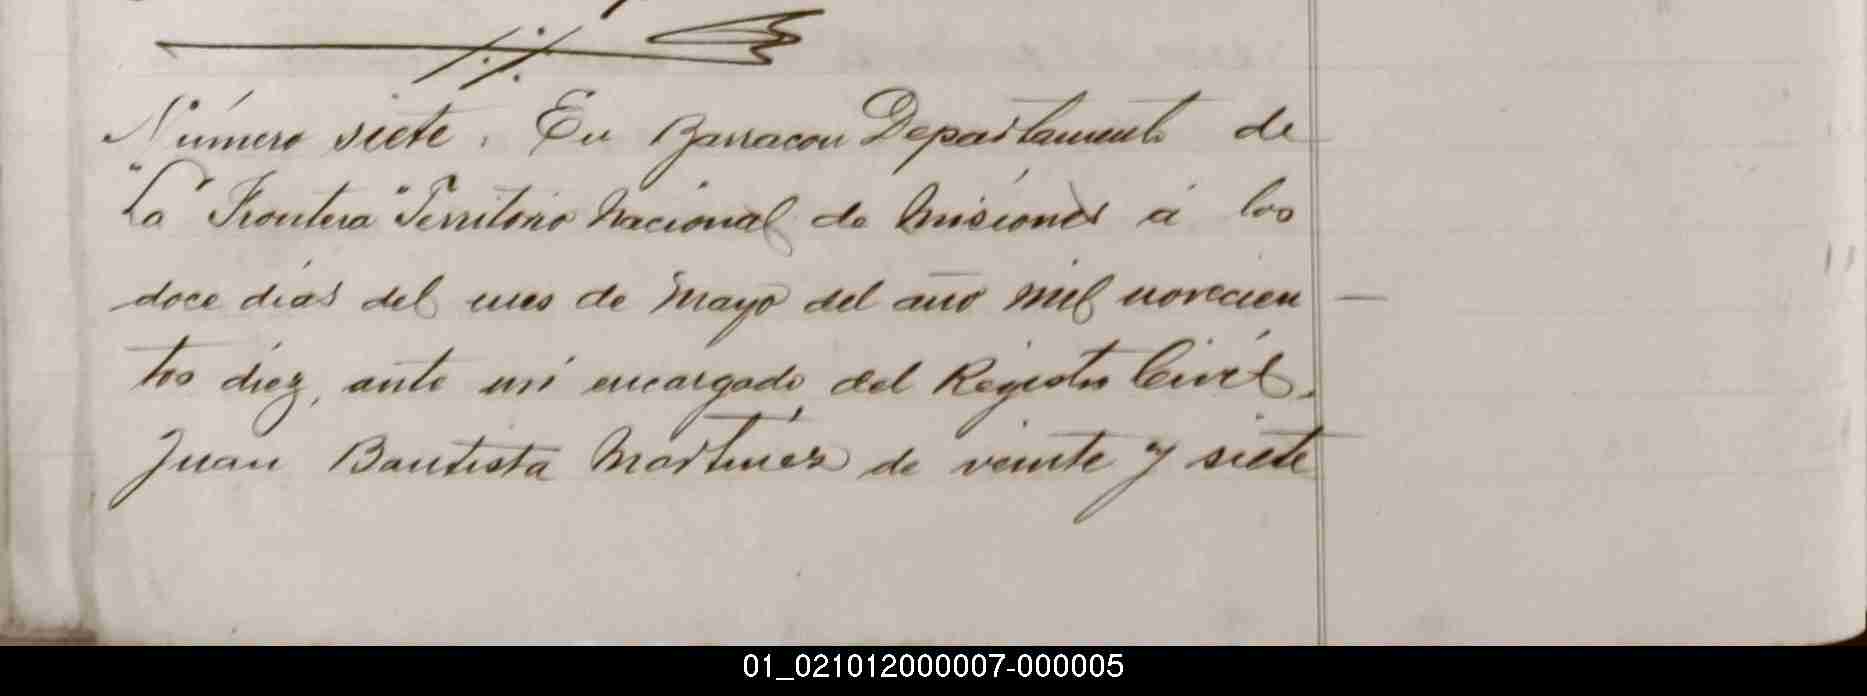 Número siete. En Barracon Departamento de
"La Frontera" Territorio Nacional de Misiones á los
doce dias del mes de Mayo del año mil novecien
tos diez, ante mi encargado del Registro Civil,
Juan Bautista Martinez de veinte y siete
01_021012000007-000005